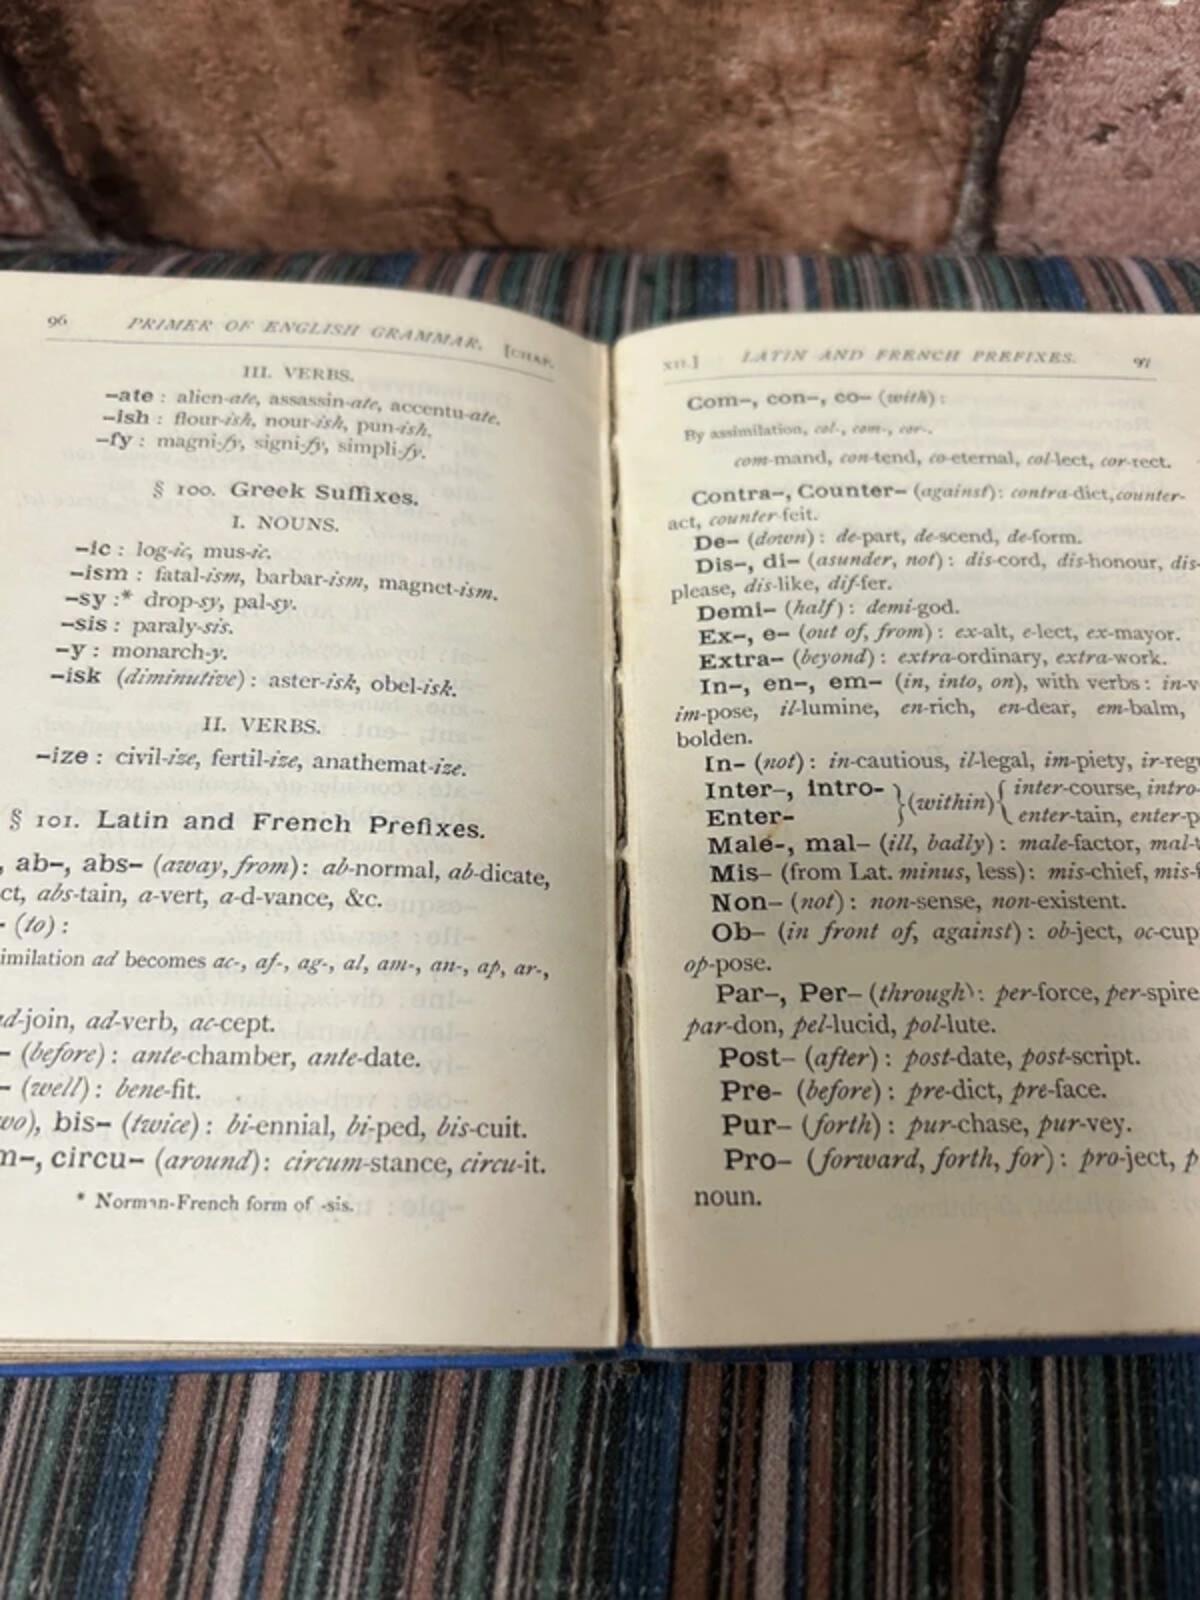 96 PRIMER OF ENGLISH GRAMMAR. [CHAP.
III. VERBS.
-ate : alien-ate, assassin-ate, accentu-ate.
-ish : flour-ish, nour-ish, pun-ish.
-fy : magni-fy, signi-fy, simpli-fy.
§ 100. Greek Suffixes.
I. NOUNS.
-ic : log-ic, mus-ic.
-ism : fatal-ism, barbar-ism, magnet-ism.
-sy :* drop-sy, pal-sy.
-sis : paraly-sis.
-y : monarch-y.
-isk (diminutive) : aster-isk, obel-isk.
II. VERBS.
-ize : civil-ize, fertil-ize, anathemat-ize.
§ 101. Latin and French Prefixes.
, ab-, abs- (away, from) : ab-normal, ab-dicate,
ct, abs-tain, a-vert, a-d-vance, &c.
- (to) :
imilation ad becomes ac-, af-, ag-, al, am-, an-, ap, ar-,
ad-join, ad-verb, ac-cept.
- (before) : ante-chamber, ante-date.
- (well) : bene-fit.
wo), bis- (twice) : bi-ennial, bi-ped, bis-cuit.
m-, circu- (around) : circum-stance, circu-it.
* Norman-French form of -sis.
XII.] LATIN AND FRENCH PREFIXES. 97
Com-, con-, co- (with) :
By assimilation, col-, com-, cor-.
com-mand, con-tend, co-eternal, col-lect, cor-rect.
Contra-, Counter- (against) : contra-dict, counter-
act, counter-feit.
De- (down) : de-part, de-scend, de-form.
Dis-, di- (asunder, not) : dis-cord, dis-honour, dis-
please, dis-like, dif-fer.
Demi- (half) : demi-god.
Ex-, e- (out of, from) : ex-alt, e-lect, ex-mayor.
Extra- (beyond) : extra-ordinary, extra-work.
In-, en-, em- (in, into, on), with verbs : in-v
im-pose, il-lumine, en-rich, en-dear, em-balm,
bolden.
In- (not) : in-cautious, il-legal, im-piety, ir-regu
Inter-, intro- } (within) { inter-course, intro-
Enter- enter-tain, enter-p
Male-, mal- (ill, badly) : male-factor, mal-t
Mis- (from Lat. minus, less) : mis-chief, mis-f
Non- (not) : non-sense, non-existent.
Ob- (in front of, against) : ob-ject, oc-cup
op-pose.
Par-, Per- (through) : per-force, per-spire
par-don, pel-lucid, pol-lute.
Post- (after) : post-date, post-script.
Pre- (before) : pre-dict, pre-face.
Pur- (forth) : pur-chase, pur-vey.
Pro- (forward, forth, for) : pro-ject, p
noun.